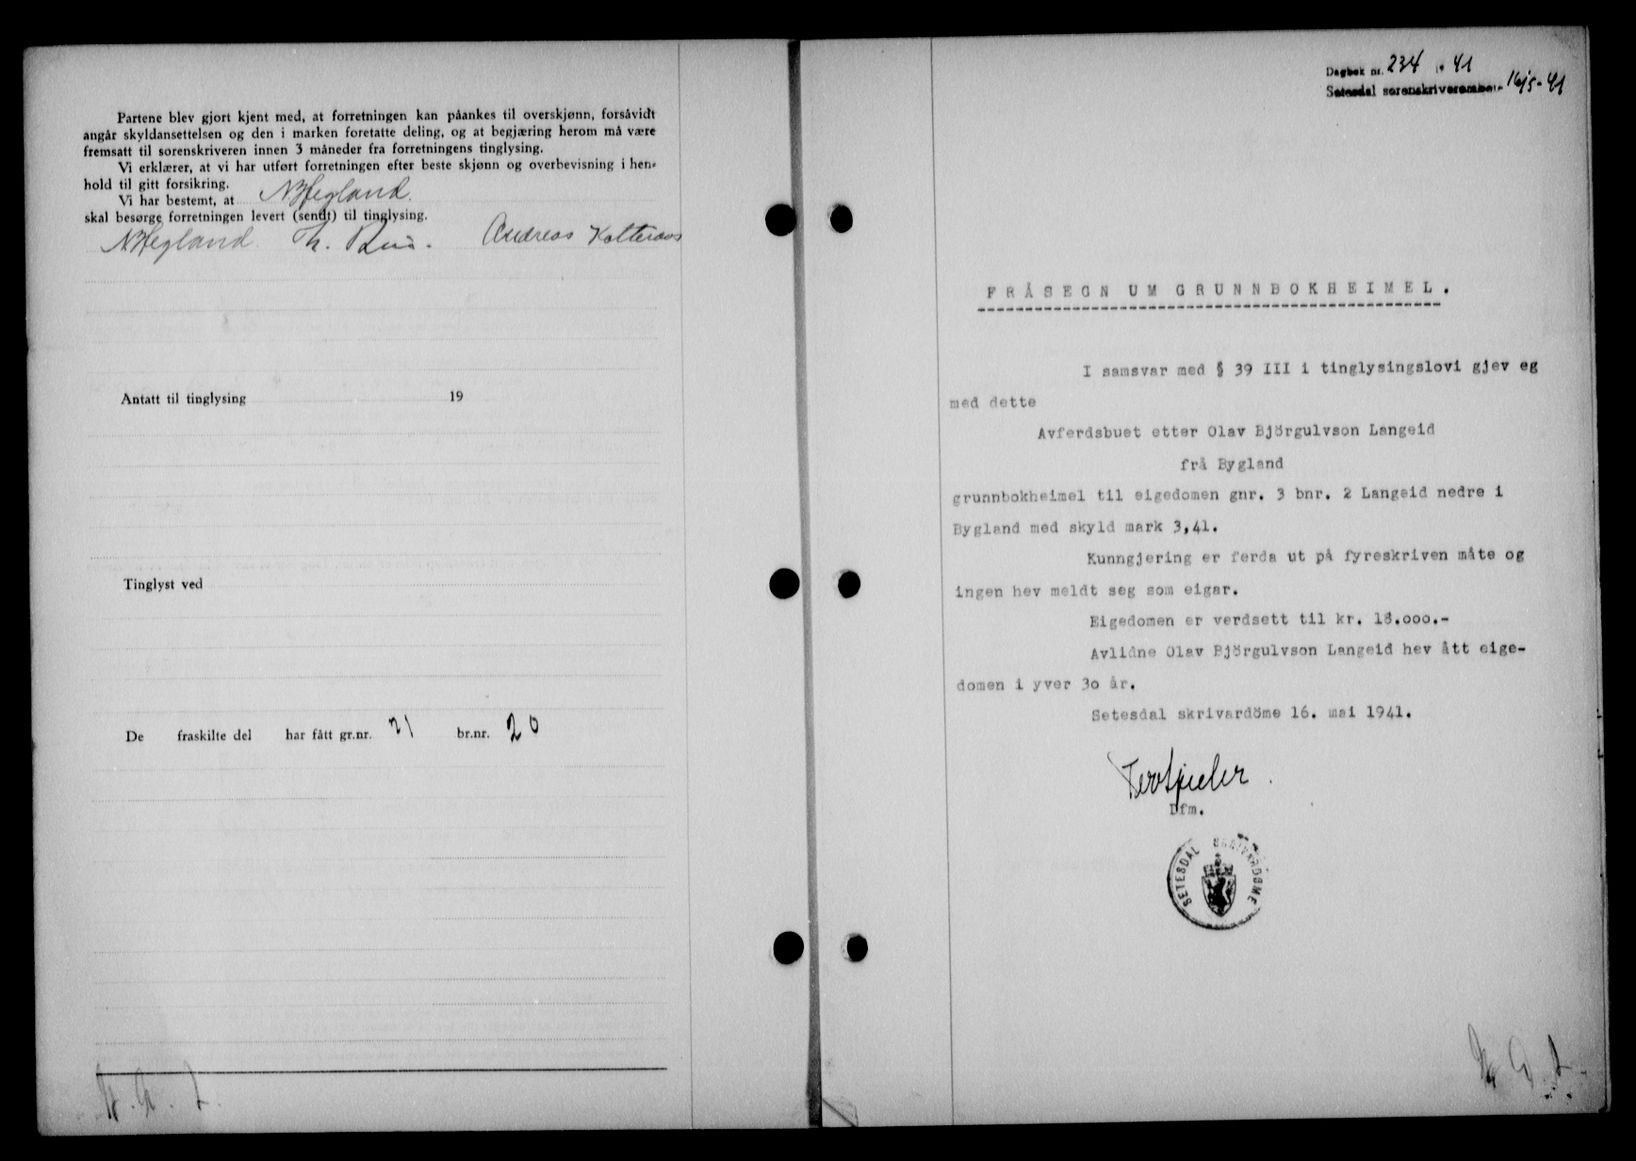 Partene blev gjort kjent med, at forretningen kan påankes til overskjønn, forsåvidt
angår skyldansettelsen og den i marken foretatte deling, og at begjæring herom må være
fremsatt til sorenskriveren innen 3 måneder fra forretningens tinglysing.
Vi erklærer, at vi har utført forretningen efter beste skjønn og overbevisning i hen-
hold til gitt forsikring.
Vi har bestemt, at N Hegland.
skal besørge forretningen levert (sendt) til tinglysing.
N Hegland. Th. Andreas
Antatt til tinglysing 19
Tinglyst ved
De fraskilte del har fått gr.nr. 21 br.nr. 20
Dagbok nr. 234 41
Setesdal sorenskriverembe 16/5-41
FRÅSEGN UM GRUNNBOKHEIMEL.
I samsvar med § 39 III i tinglysingslovi gjev eg
med dette
Avferdsbuet etter Olav Björgulvson Langeid
frå Bygland
grunnbokheimel til eigedomen gnr. 3 bnr. 2 Langeid nedre i
Bygland med skyld mark 3,41.
Kunngjering er ferda ut på fyreskriven måte og
ingen hev meldt seg som eigar.
Eigedomen er verdsett til kr. 18.000.-
Avlidne Olav Björgulvson Langeid hev ått eige-
domen i yver 3o år.
Setesdal skrivardöme 16. mai 1941.
Dfm.
SETESDAL SKRIVARDØME